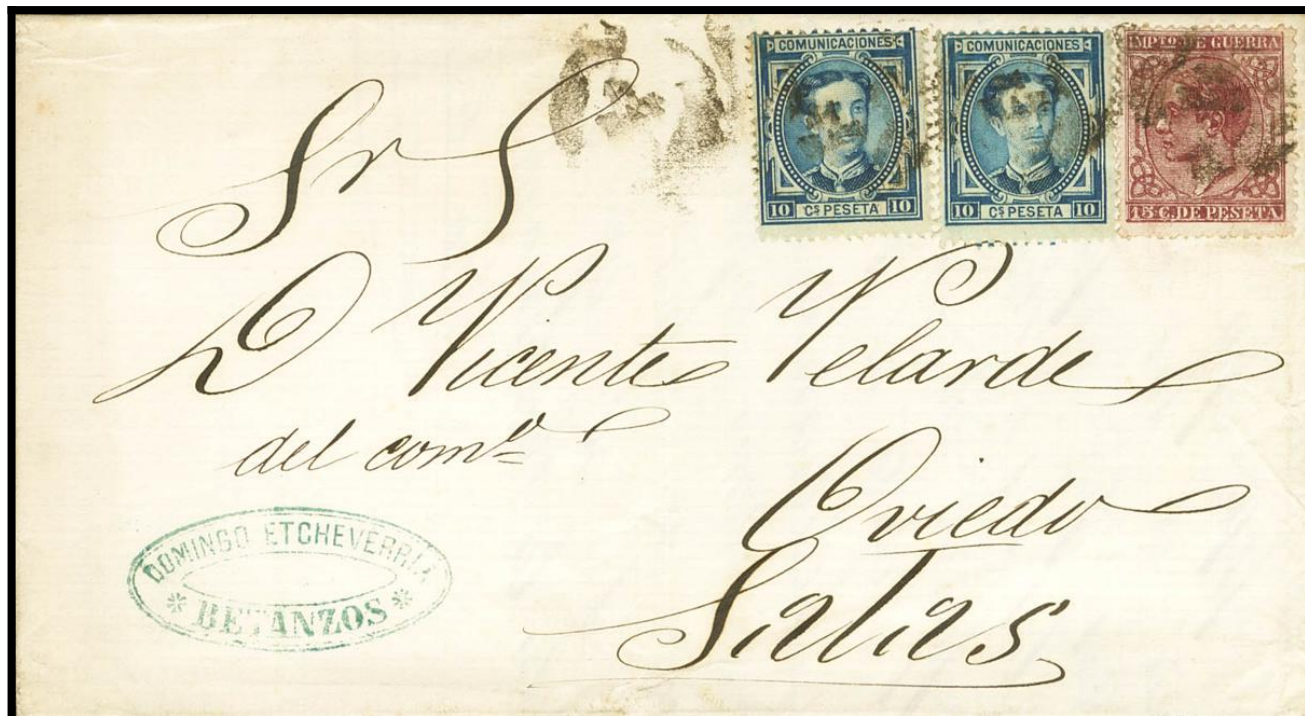 COMUNICACIONES
10 Cs PESETA 10
COMUNICACIONES
10 Cs PESETA 10
IMPTO. DE GUERRA
15 C. DE PESETA
Sr
D Vicente Velarde
del como
Oviedo
Salas
DOMINGO ETCHEVERRIA
* BETANZOS *